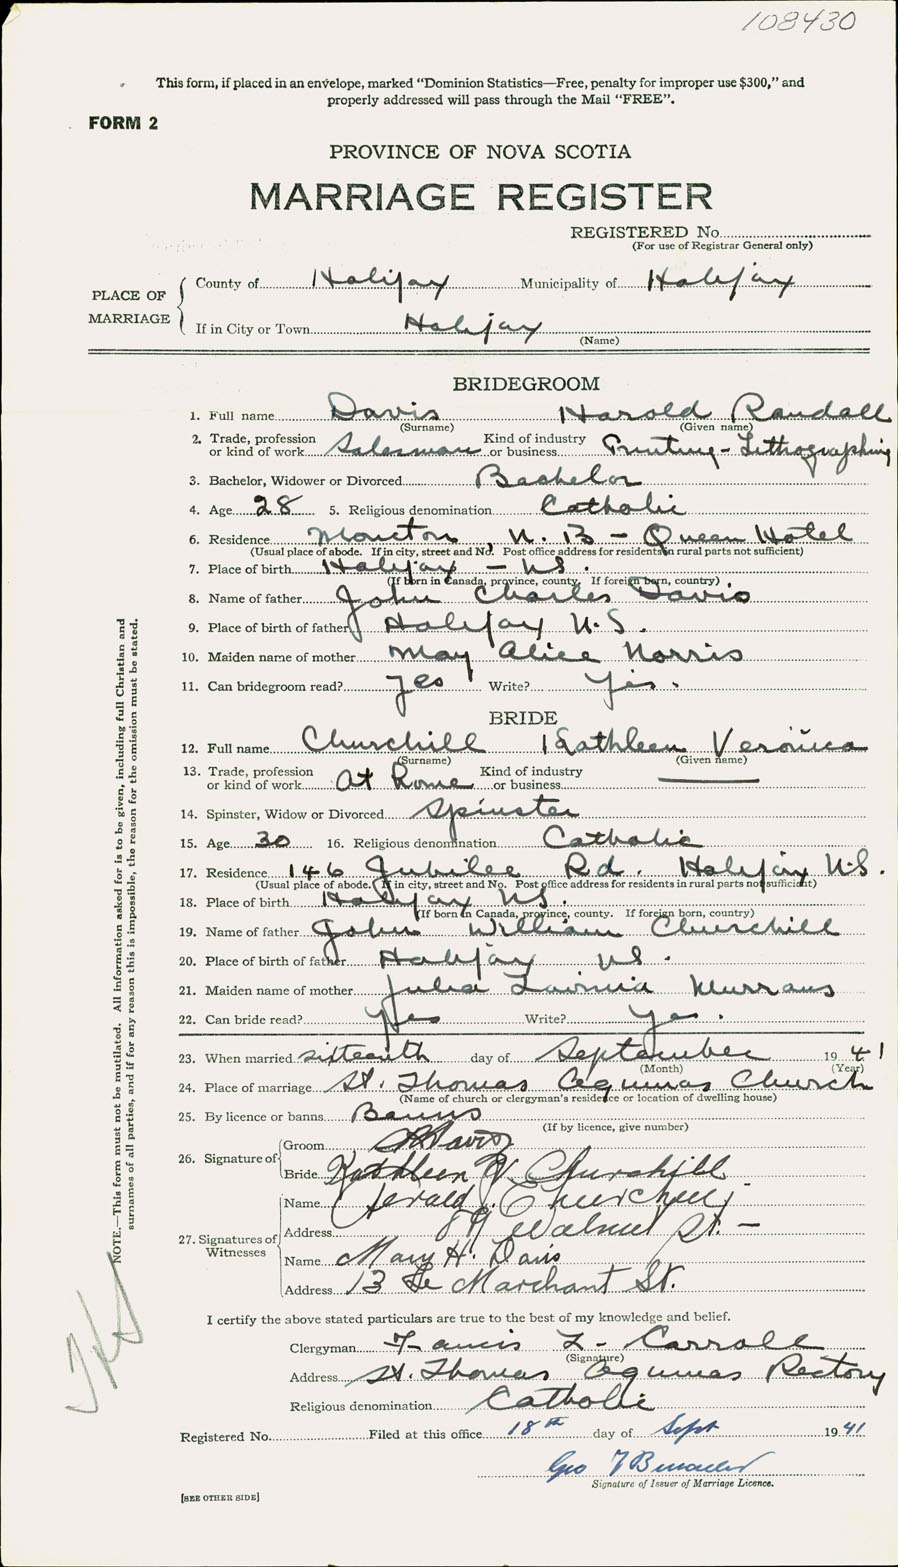 108430
This form, if placed in an envelope, marked "Dominion Statistics—Free, penalty for improper use $300," and
properly addressed will pass through the Mail "FREE".
FORM 2
PROVINCE OF NOVA SCOTIA
MARRIAGE REGISTER
REGISTERED No.
(For use of Registrar General only)
PLACE OF MARRIAGE
County of Halifax Municipality of Halifax
If in City or Town Halifax
(Name)
BRIDEGROOM
1. Full name Davis Harold Randall
(Surname) (Given name)
2. Trade, profession or kind of work Salesman Kind of industry or business Printing - Lithographing
3. Bachelor, Widower or Divorced Bachelor
4. Age 28 5. Religious denomination Catholic
6. Residence Moncton, N. B - Queen Hotel
(Usual place of abode. If in city, street and No. Post office address for residents in rural parts not sufficient)
7. Place of birth Halifax - N.S.
(If born in Canada, province, county. If foreign born, country)
8. Name of father John Charles Davis
9. Place of birth of father Halifax N.S.
10. Maiden name of mother May Alice Norris
11. Can bridegroom read? yes Write? Yes.
BRIDE
12. Full name Churchill Kathleen Veronica
(Surname) (Given name)
13. Trade, profession or kind of work At Home Kind of industry or business
14. Spinster, Widow or Divorced Spinster
15. Age 30 16. Religious denomination Catholic
17. Residence 146 Jubilee Rd. Halifax N.S.
(Usual place of abode. If in city, street and No. Post office address for residents in rural parts not sufficient)
18. Place of birth Halifax N.S.
(If born in Canada, province, county. If foreign born, country)
19. Name of father John William Churchill
20. Place of birth of father Halifax N.S.
21. Maiden name of mother Julia
22. Can bride read? Yes Write? Yes.
23. When married sixteenth day of September 1941
(Month) (Year)
24. Place of marriage St. Thomas Aquinas Church
(Name of church or clergyman's residence or location of dwelling house)
25. By licence or banns Banns
(If by licence, give number)
26. Signature of
Groom Davis
Bride Kathleen V. Churchill
27. Signatures of Witnesses
Name Gerald Churchill
Address 89 Walnut St. -
Name Mary H. Davis
Address 13 Le Marchant St.
I certify the above stated particulars are true to the best of my knowledge and belief.
Clergyman Francis L. Carroll
(Signature)
Address St. Thomas Aquinas Rectory
Religious denomination Catholic
Registered No. Filed at this office 18th day of Sept 1941
Geo
Signature of Issuer of Marriage Licence.
[SEE OTHER SIDE]
NOTE.—This form must not be mutilated. All Information asked for is to be given, including full Christian and
surnames of all parties, and if for any reason this is impossible, the reason for the omission must be stated.